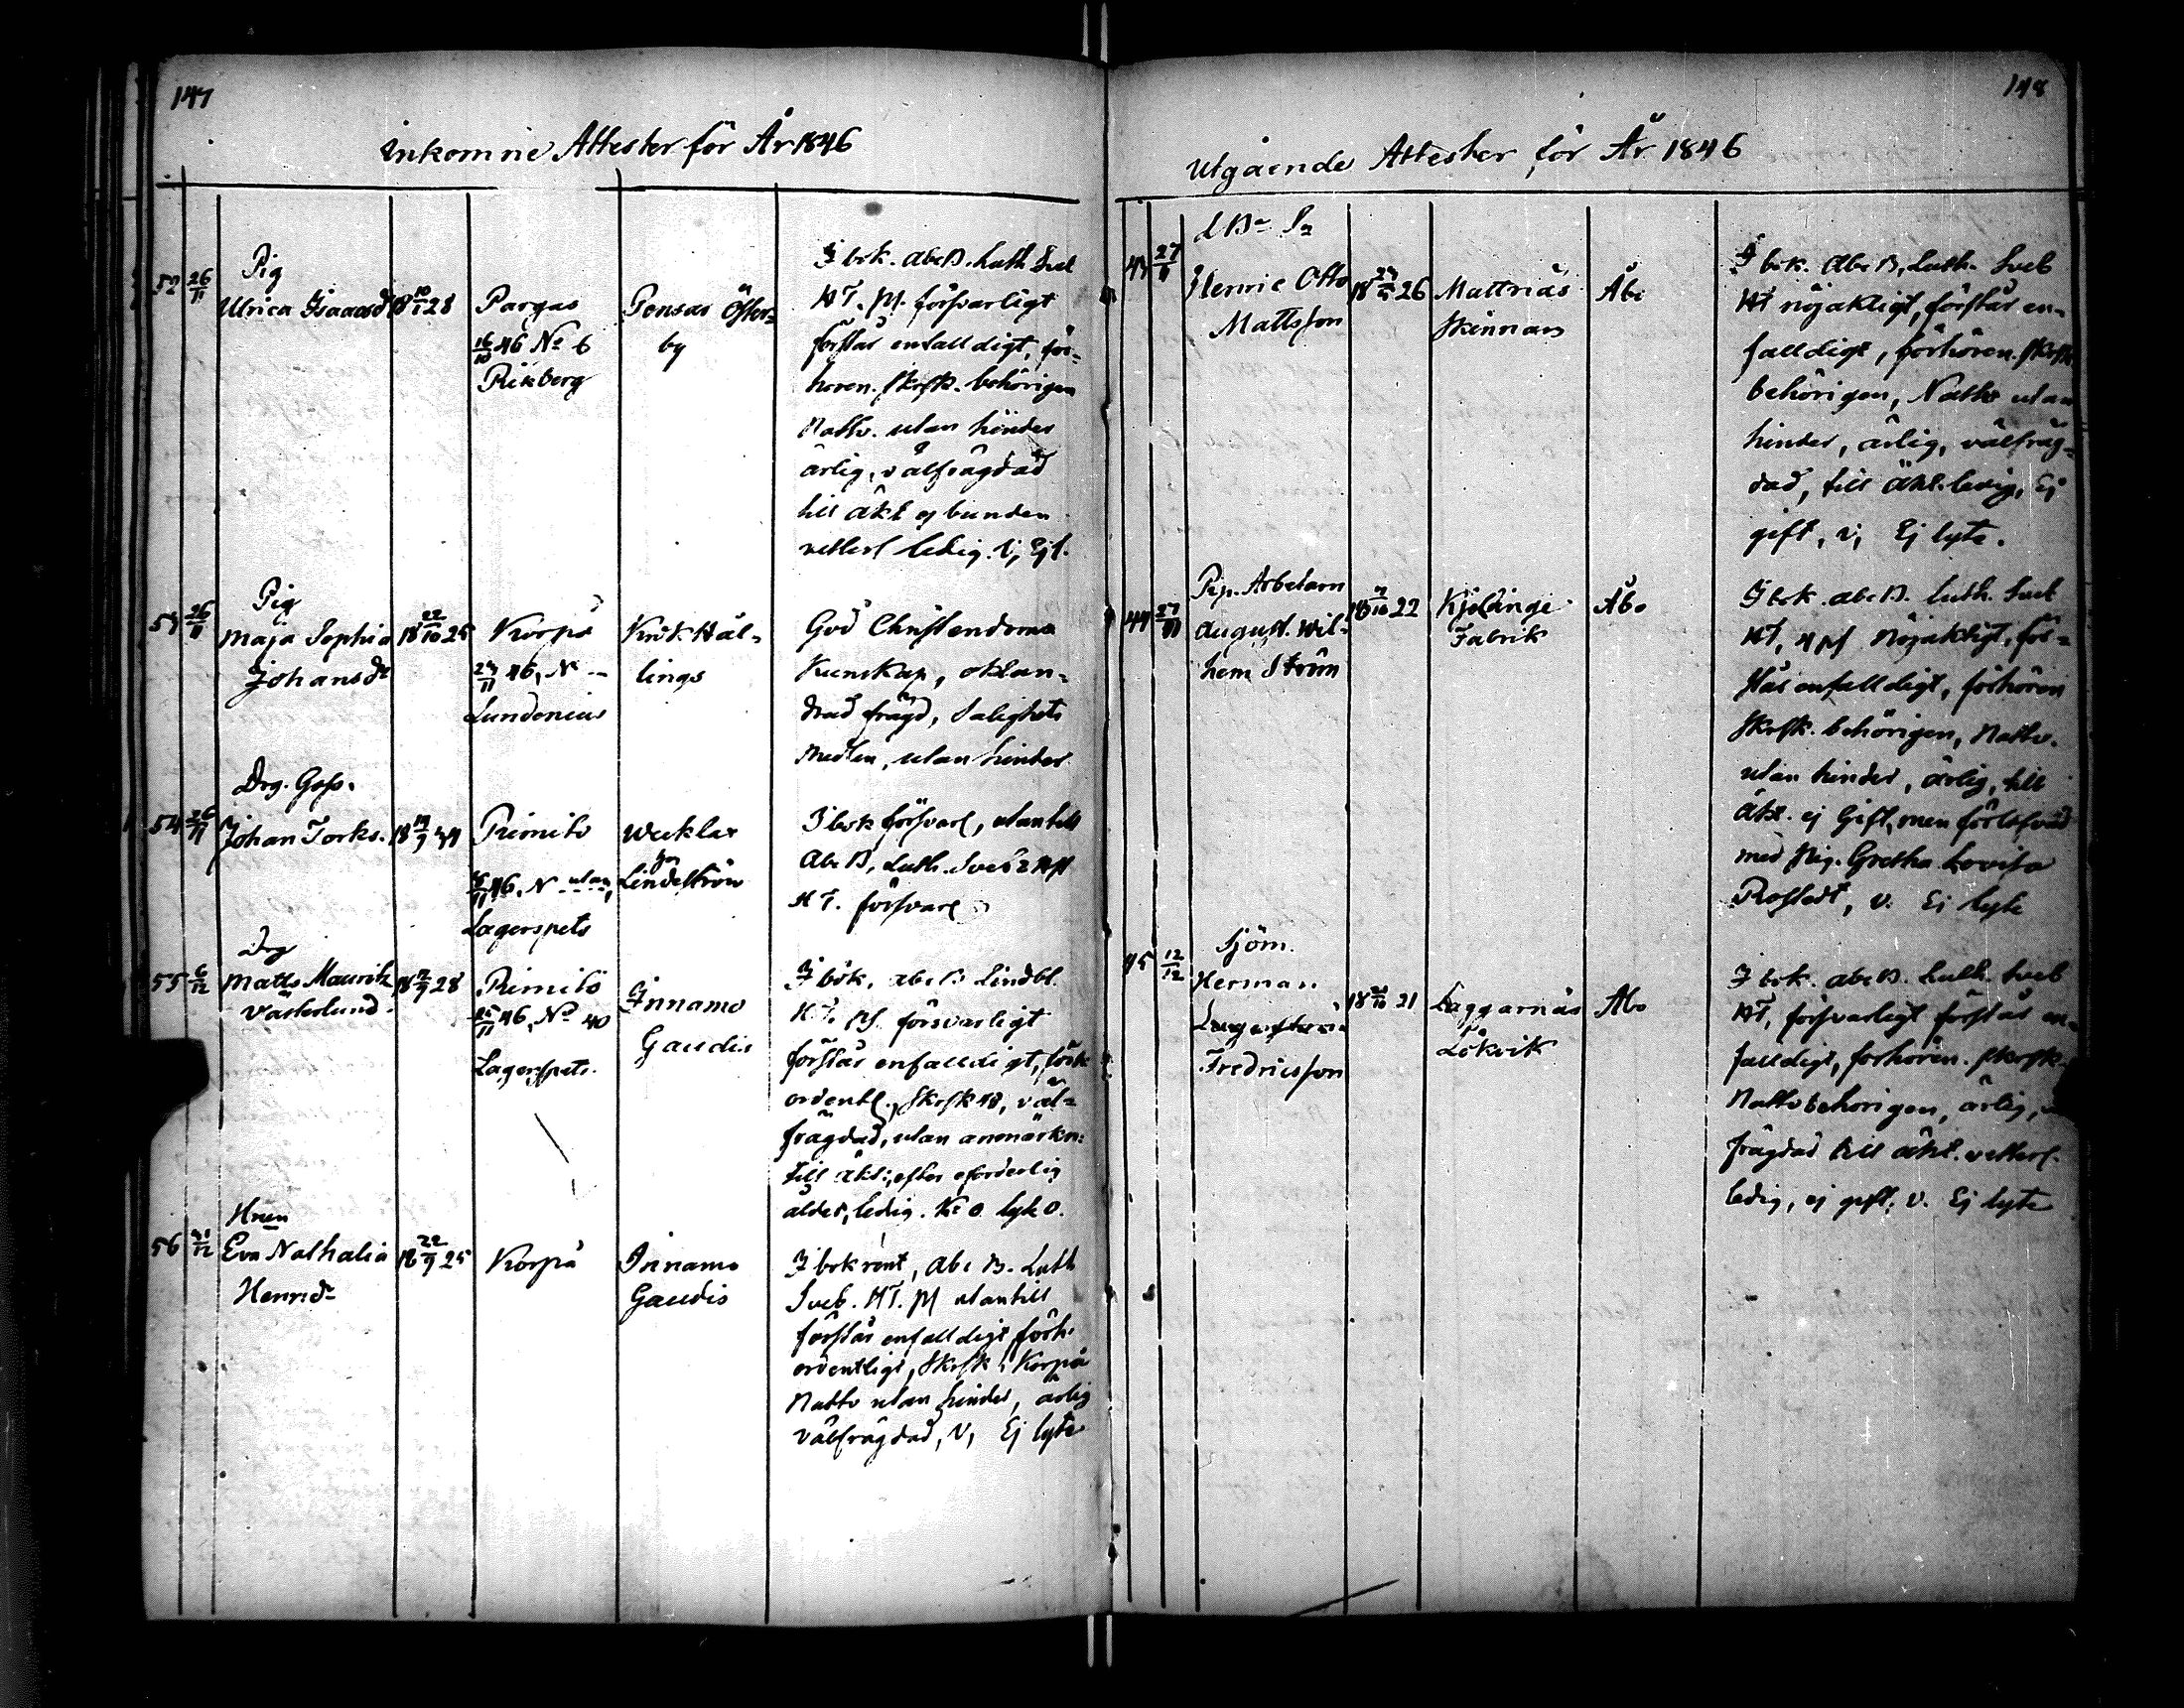 147
Inkomne Attester för År 1846
52 26/11 Pig
Ulrica Isaacsdr 18 10/1 28
Pargas
16/10 46 No 6
Rikberg
Pensar Öster=
by
I bok. Abc B. Luth. Sveb
HT. pf. försvarligt
förstår enfalldigt, för-
hören. skrftsk. behörigen
Nattv. utan hinder
ärlig, välfrägdad
till äkt ej bunden
vetterl ledig. V, Ej l.
53 26/11 Pig
Maja Sophia
Johansdr
18 22/10 25
Korpo
46, N --
Lundenius
Kirk Häl=
lings
God Christendoms
Kunskap, oklan=
drad frägd, Salighets
Medlen, utan hinder
54 26/11 Drg. Goss.
Johan Torks.
Rimito
46, N utan,
Lagerspets
Wecklax
Lindström
I bok försvarl, utantill
Abc B, Luth. Sveb 2 Hpf
HT. försvarl
55 6/12 Drg
Matts Mauritz
Vasterlund
28
Rimito
25/11 46, No 40
Lagerspets.
Innamo
Gaudis
I bok, abc B Lindbl.
HT. pf. försvarligt
förstår enfalldigt, förh
ordentl., skrftsk 48, väl=
frägdad, utan anmärkn:
till äkt: efter erforderlig
ålder, ledig. Ko 0 lyte 0.
56 Hnen
Eva Nathalia
Henrdr
18 22/9 25
Korpo
Innamo
Gaudis
I bok rent, Abc B. Luth
Sveb. HT. pf utantill
förstår enfalldigt förh.
ordentligt, skrftsk i Korpo
Nattv utan hinder, ärlig
välfrägdad, V, Ej lyte
148
Utgående Attester för År 1846
43
Henric Otto
Mattsson
26
Mattnäs
Skinnars
Åbo
I bok. Abc B, Luth. Sveb
HT nöjaktigt, förstår en-
falldigt, förhören. skrftsk
behörigen, Nattv utan
hinder, ärlig, välfräg=
dad, till Äkt. ledig, Ej
gift, v, Ej lyte.
44 27/11 Pip. Arbetarn
August. Wil-
hem Ström
22
Kjölinge
Fabrik
Åbo
I bok. abc B. Luth. Sveb
HT, 4 pf Nöjaktigt, för=
står enfalldigt, förhören
skrftsk. behörigen, Nattv.
utan hinder, ärlig, till
äkt. ej Gift, men förlofvad
med Pig. Gretha Lovisa
Rostedt, v. Ej lyte
45 12/12 Sjöm.
Herman
Fredricsson
21
Laggarnäs
Lökvik
Åbo
I bok. abc B. Luth. Sveb
HT, försvarligt förstår en=
falldigt, förhören. skrftsk.
Nattv behörigen, ärlig,
frägdad till äkt. vetterl.
ledig, ej gift. v. Ej lyte